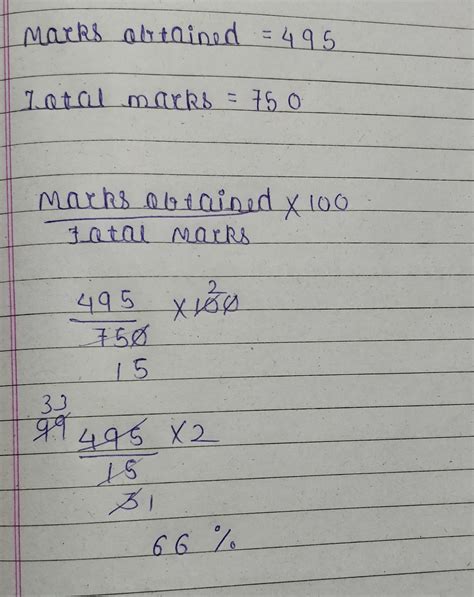 Marks obtained = 495
Total marks = 750
Marks obtained × 100
Total Marks
2
495 × 100
750
15
33
99 495 × 2
15
3 1
66 %